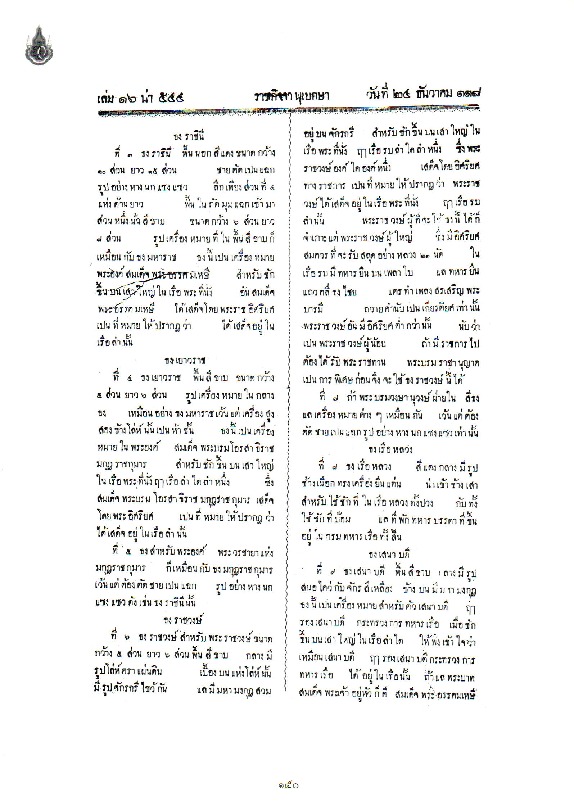 เล่ม ๑๖ น่า ๕๔๔ ราชกิจจานุเบกษา วันที่ ๒๔ ธันวาคม ๑๑๘
ธง ราชินี
ที่ ๓ ธง ราชินี พื้น นอก สี แดง ขนาด กว้าง
๑๐ ส่วน ยาว ๑๕ ส่วน ชาย ตัด เปน แฉก
รูป อย่าง หาง นก แซง แซว ลึก เพียง ส่วน ที่ ๔
แห่ง ด้าน ยาว พื้น ใน ตัด มุม แฉก เข้า มา
ส่วน หนึ่ง นั้น สี ขาบ ขนาด กว้าง ๖ ส่วน ยาว
๘ ส่วน รูป เครื่อง หมาย ที่ ใน พื้น สี ขาบ ก็
เหมือน กับ ธง มหาราช ธง นี้ เปน เครื่อง หมาย
พระองค์ สมเด็จ พระอรรค มเหษี สำหรับ ชัก
ขึ้น บน เสา ใหญ่ ใน เรือ พระ ที่นั่ง อัน สมเด็จ
พระอรรค มเหษี ได้ เสด็จ โดย พระราช อิศริยศ
เปน ที่ หมาย ให้ ปรากฏ ว่า ได้ เสด็จ อยู่ ใน
เรือ ลำ นั้น
ธง เยาวราช
ที่ ๔ ธง เยาวราช พื้น สี ขาบ ขนาด กว้าง
๕ ส่วน ยาว ๖ ส่วน รูป เครื่อง หมาย ใน กลาง
ธง เหมือน อย่าง ธง มหาราช เว้น แต่ เครื่อง สูง
สอง ข้าง โล่ห์ นั้น เปน ห้า ชั้น ธง นี้ เปน เครื่อง
หมาย ใน พระองค์ สมเด็จ พระบรม โอรสาธิราช
มกุฎ ราชกุมาร สำหรับ ชัก ขึ้น บน เสา ใหญ่
ใน เรือ พระ ที่ นั่ง ฤๅ เรือ ลำ ใด ลำ หนึ่ง ซึ่ง
สมเด็จ พระบรม โอรสาธิราช มกุฎราช กุมาร เสด็จ
โดย พระ อิศริยศ เปน ที่ หมาย ให้ ปรากฏ ว่า
ได้ เสด็จ อยู่ ใน เรือ ลำ นั้น
ที่ ๕ ธง สำหรับ พระองค์ พระ วรชายา แห่ง
มกุฎราชกุมาร ก็ เหมือน กับ ธง มกุฎราชกุมาร
เว้น แต่ ต้อง ตัด ชาย เปน แฉก รูป อย่าง หาง นก
แซง แซว ดัง เช่น ธง ราชินี นั้น
ธง ราชวงษ์
ที่ ๖ ธง ราชวงษ์ สำหรับ พระ ราชวงษ์ ขนาด
กว้าง ๕ ส่วน ยาว ๖ ส่วน พื้น สี ขาบ กลาง มี
รูป โล่ห์ ตรา แผ่นดิน เบื้อง บน แห่ง โล่ห์ นั้น
มี รูป จักรกรี ไขว้ กัน แล มี มหา มงกุฎ สวม
อยู่ บน จักรกรี สำหรับ ชัก ขึ้น บน เสา ใหญ่ ใน
เรือ พระ ที่นั่ง ฤๅ เรือ รบ ลำ ใด ลำ หนึ่ง ซึ่ง พระ
ราชวงษ์ องค์ ใด องค์ หนึ่ง เสด็จ โดย อิศริยศ
ทาง ราชการ เปน ที่ หมาย ให้ ปรากฏ ว่า พระราช
วงษ์ ได้ เสด็จ อยู่ ใน เรือ พระ ที่นั่ง ฤๅ เรือ รบ
ลำ นั้น พระราช วงษ์ ผู้ ที่ จะ ใช้ ธง นี้ ได้ ก็
จำเภาะ แต่ พระราช วงษ์ ผู้ ใหญ่ ซึ่ง มี อิศริยศ
สมควร ที่ จะ รับ สลุต อย่าง หลวง ๒๑ นัด ใน
เรือ รบ มี ทหาร ยืน บน เพลา ใบ แล ทหาร ยืน
แถว คลี่ ธง ไชย แตร ทำ เพลง สรเสริญ พระ
บารมี ถวาย คำนับ เปน เกียรติยศ เท่า นั้น
พระราช วงษ์ อัน มี อิศริยศ ต่ำ กว่า นั้น นับ ว่า
เปน พระราช วงษ์ ผู้น้อย ถ้า มี ราชการ ไป
ต้อง ได้ รับ พระราชทาน พระบรม ราชานุญาต
เปน การ พิเศษ ก่อน จึง จะ ใช้ ธง ราชวงษ์ นี้ ได้
ที่ ๗ ถ้า พระบรมวงษา นุวงษ์ ฝ่าย ใน สี ธง
แล เครื่อง หมาย ต่าง ๆ เหมือน กัน เว้น แต่ ต้อง
ตัด ชาย เปน แฉก รูป อย่าง หาง นก แซงแซว เท่า นั้น
ธง เรือ หลวง
ที่ ๘ ธง เรือ หลวง สี แดง กลาง มี รูป
ช้าง เผือก ทรง เครื่อง ยืน แท่น น่า เข้า ข้าง เสา
สำหรับ ใช้ ชัก ที่ ใน เรือ หลวง ทั้งปวง กับ ทั้ง
ใช้ ชัก ที่ ป้อม แล ที่ พัก ทหาร บรรดา ที่ ขึ้น
อยู่ ใน กรม ทหาร เรือ ทั้ง สิ้น
ธง เสนา บดี
ที่ ๙ ธง เสนา บดี พื้น สี ขาบ กลาง มี รูป
สมอ ไขว้ กับ จักร สี เหลือง ข้าง บน มี มหา มงกุฎ
ธง นี้ เปน เครื่อง หมาย สำหรับ ตัว เสนา บดี ฤๅ
รอง เสนา บดี กระทรวง การ ทหาร เรือ เมื่อ ชัก
ขึ้น บน เสา ใหญ่ ใน เรือ ลำ ใด ให้ พึง เข้า ใจ ว่า
เหมือน เสนา บดี ฤๅ รอง เสนา บดี กระทรวง การ
ทหาร เรือ ได้ อยู่ ใน เรือ นั้น ถ้า แล พระบาท
สมเด็จ พระเจ้า อยู่ หัว ก็ ดี สมเด็จ พระ อรรคมเหษี
๑๕๐